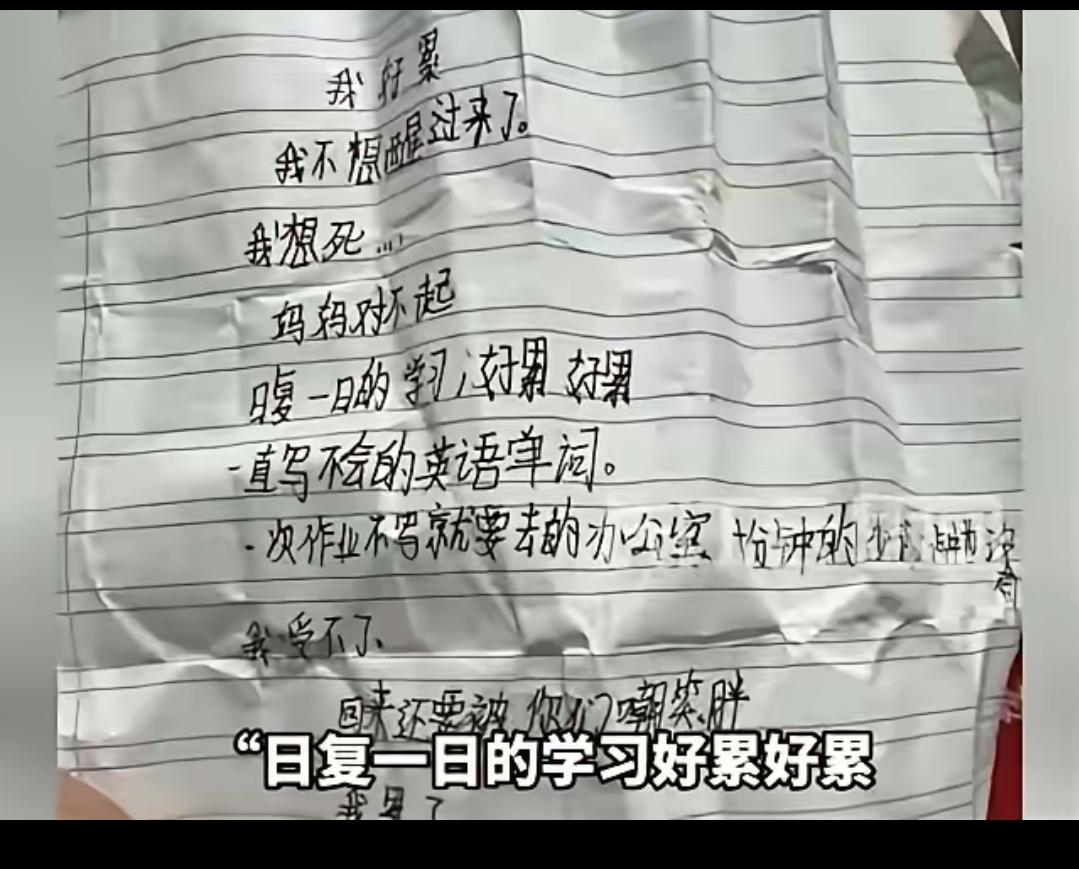 我好累
我不想醒过来了。
我想死...
妈妈对不起
日复一日的学习,好累 好累
一直写不会的英语单词。
一次作业不写就要去的办公室 十分钟的
没有
我受不了
回来还要被你们嘲笑胖
“日复一日的学习好累好累
我累了